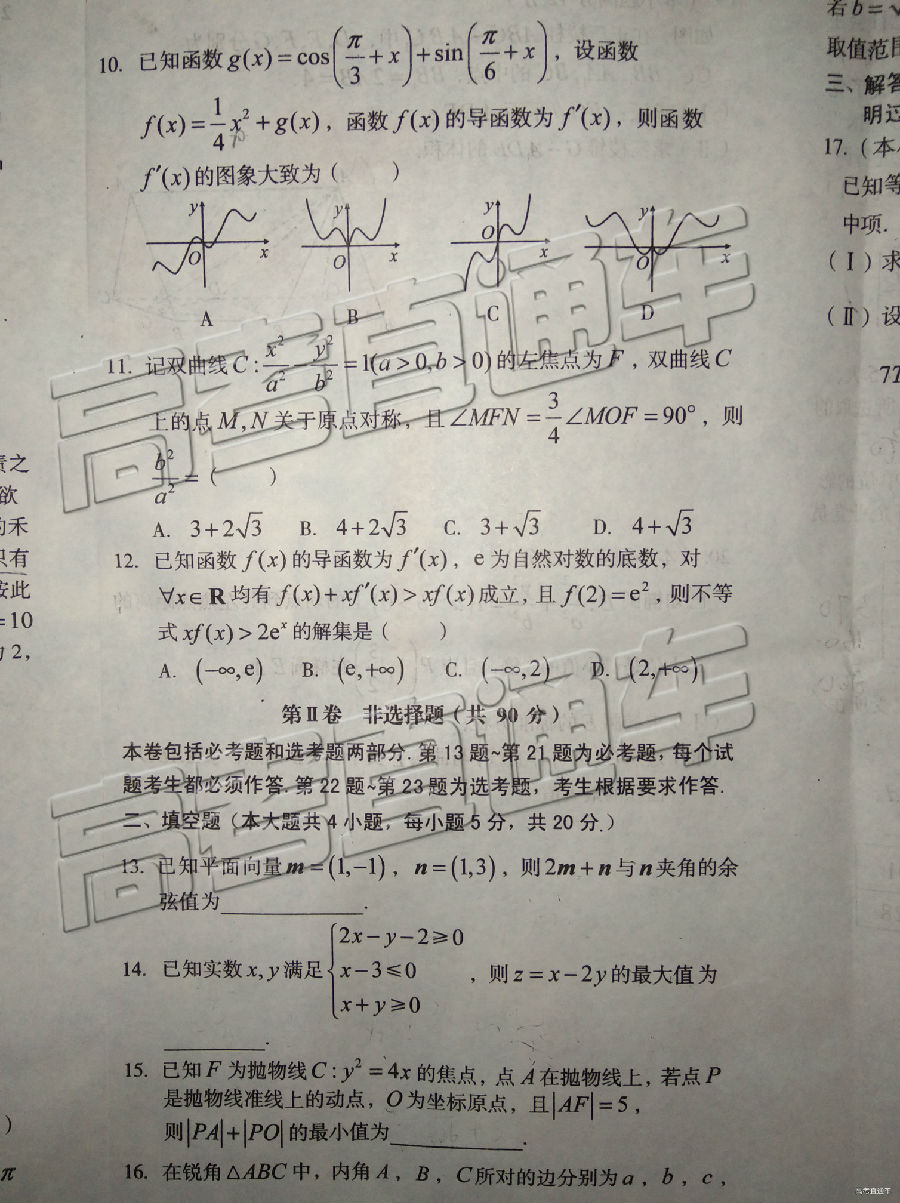 10. 已知函数 g(x)=cos(π/3+x)+sin(π/6+x)，设函数
f(x)=1/4x²+g(x)，函数 f(x) 的导函数为 f′(x)，则函数
f′(x) 的图象大致为（  ）
y y y y
O x O x O x O x
A B C D
11. 记双曲线 C: x²/a²−y²/b²=1(a>0,b>0) 的左焦点为 F，双曲线 C
上的点 M,N 关于原点对称，且 ∠MFN=3/4∠MOF=90°，则
b²/a²=（  ）
A. 3+2√3 B. 4+2√3 C. 3+√3 D. 4+√3
12. 已知函数 f(x) 的导函数为 f′(x)，e 为自然对数的底数，对
∀x∈R 均有 f(x)+xf′(x)>xf(x) 成立，且 f(2)=e²，则不等
式 xf(x)>2eˣ 的解集是（  ）
A. (−∞,e) B. (e,+∞) C. (−∞,2) D. (2,+∞)
第Ⅱ卷 非选择题（共 90 分）
本卷包括必考题和选考题两部分. 第 13 题~第 21 题为必考题，每个试
题考生都必须作答. 第 22 题~第 23 题为选考题，考生根据要求作答.
二、填空题（本大题共 4 小题，每小题 5 分，共 20 分.）
13. 已知平面向量 m=(1,−1)，n=(1,3)，则 2m+n 与 n 夹角的余
弦值为____________.
14. 已知实数 x,y 满足 {2x−y−2≥0
x−3≤0
x+y≥0
，则 z=x−2y 的最大值为
_________.
15. 已知 F 为抛物线 C: y²=4x 的焦点，点 A 在抛物线上，若点 P
是抛物线准线上的动点，O 为坐标原点，且|AF|=5，
则|PA|+|PO|的最小值为____________.
16. 在锐角△ABC 中，内角 A，B，C 所对的边分别为 a，b，c，
若 b=
取值范围
三、解答
明过
17.（本
已知等
中项.
（Ⅰ）求
（Ⅱ）设
责之
欲
的禾
只有
按此
=10
为 2，
)
π
高考直通车
高考直通车
高考直通车